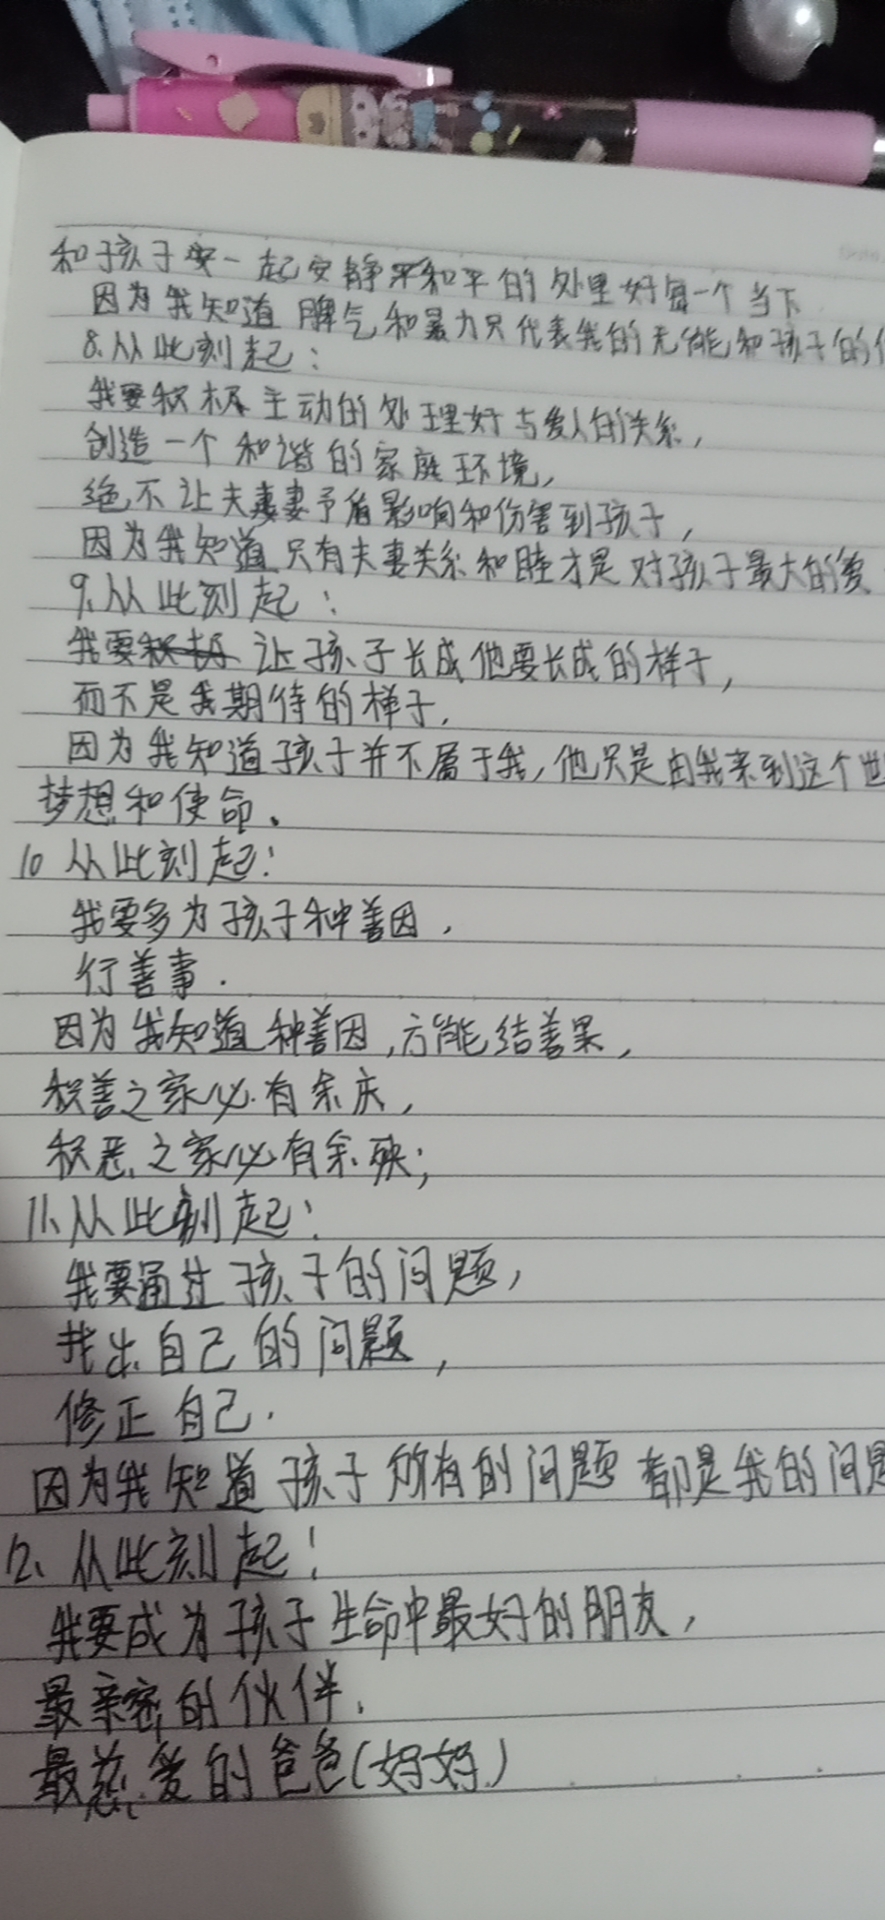 和孩子一起安静和平的处理好每一个当下
因为我知道脾气和暴力只代表我的无能和孩子的
8.从此刻起：
我要积极主动的处理好与爱人的关系，
创造一个和谐的家庭环境，
绝不让夫妻矛盾影响和伤害到孩子，
因为我知道只有夫妻关系和睦才是对孩子最大的爱
9.从此刻起：
我要让孩子长成他要长成的样子，
而不是我期待的样子，
因为我知道孩子并不属于我，他只是由我来到这个世
梦想和使命。
10 从此刻起：
我要多为孩子种善因，
行善事.
因为我知道种善因，方能结善果，
积善之家必有余庆，
积恶之家必有余殃；
11、从此刻起：
我要通过孩子的问题，
找出自己的问题，
修正自己.
因为我知道孩子所有的问题都是我的问题
12、从此刻起！
我要成为孩子生命中最好的朋友，
最亲密的伙伴，
最慈爱的爸爸(妈妈)